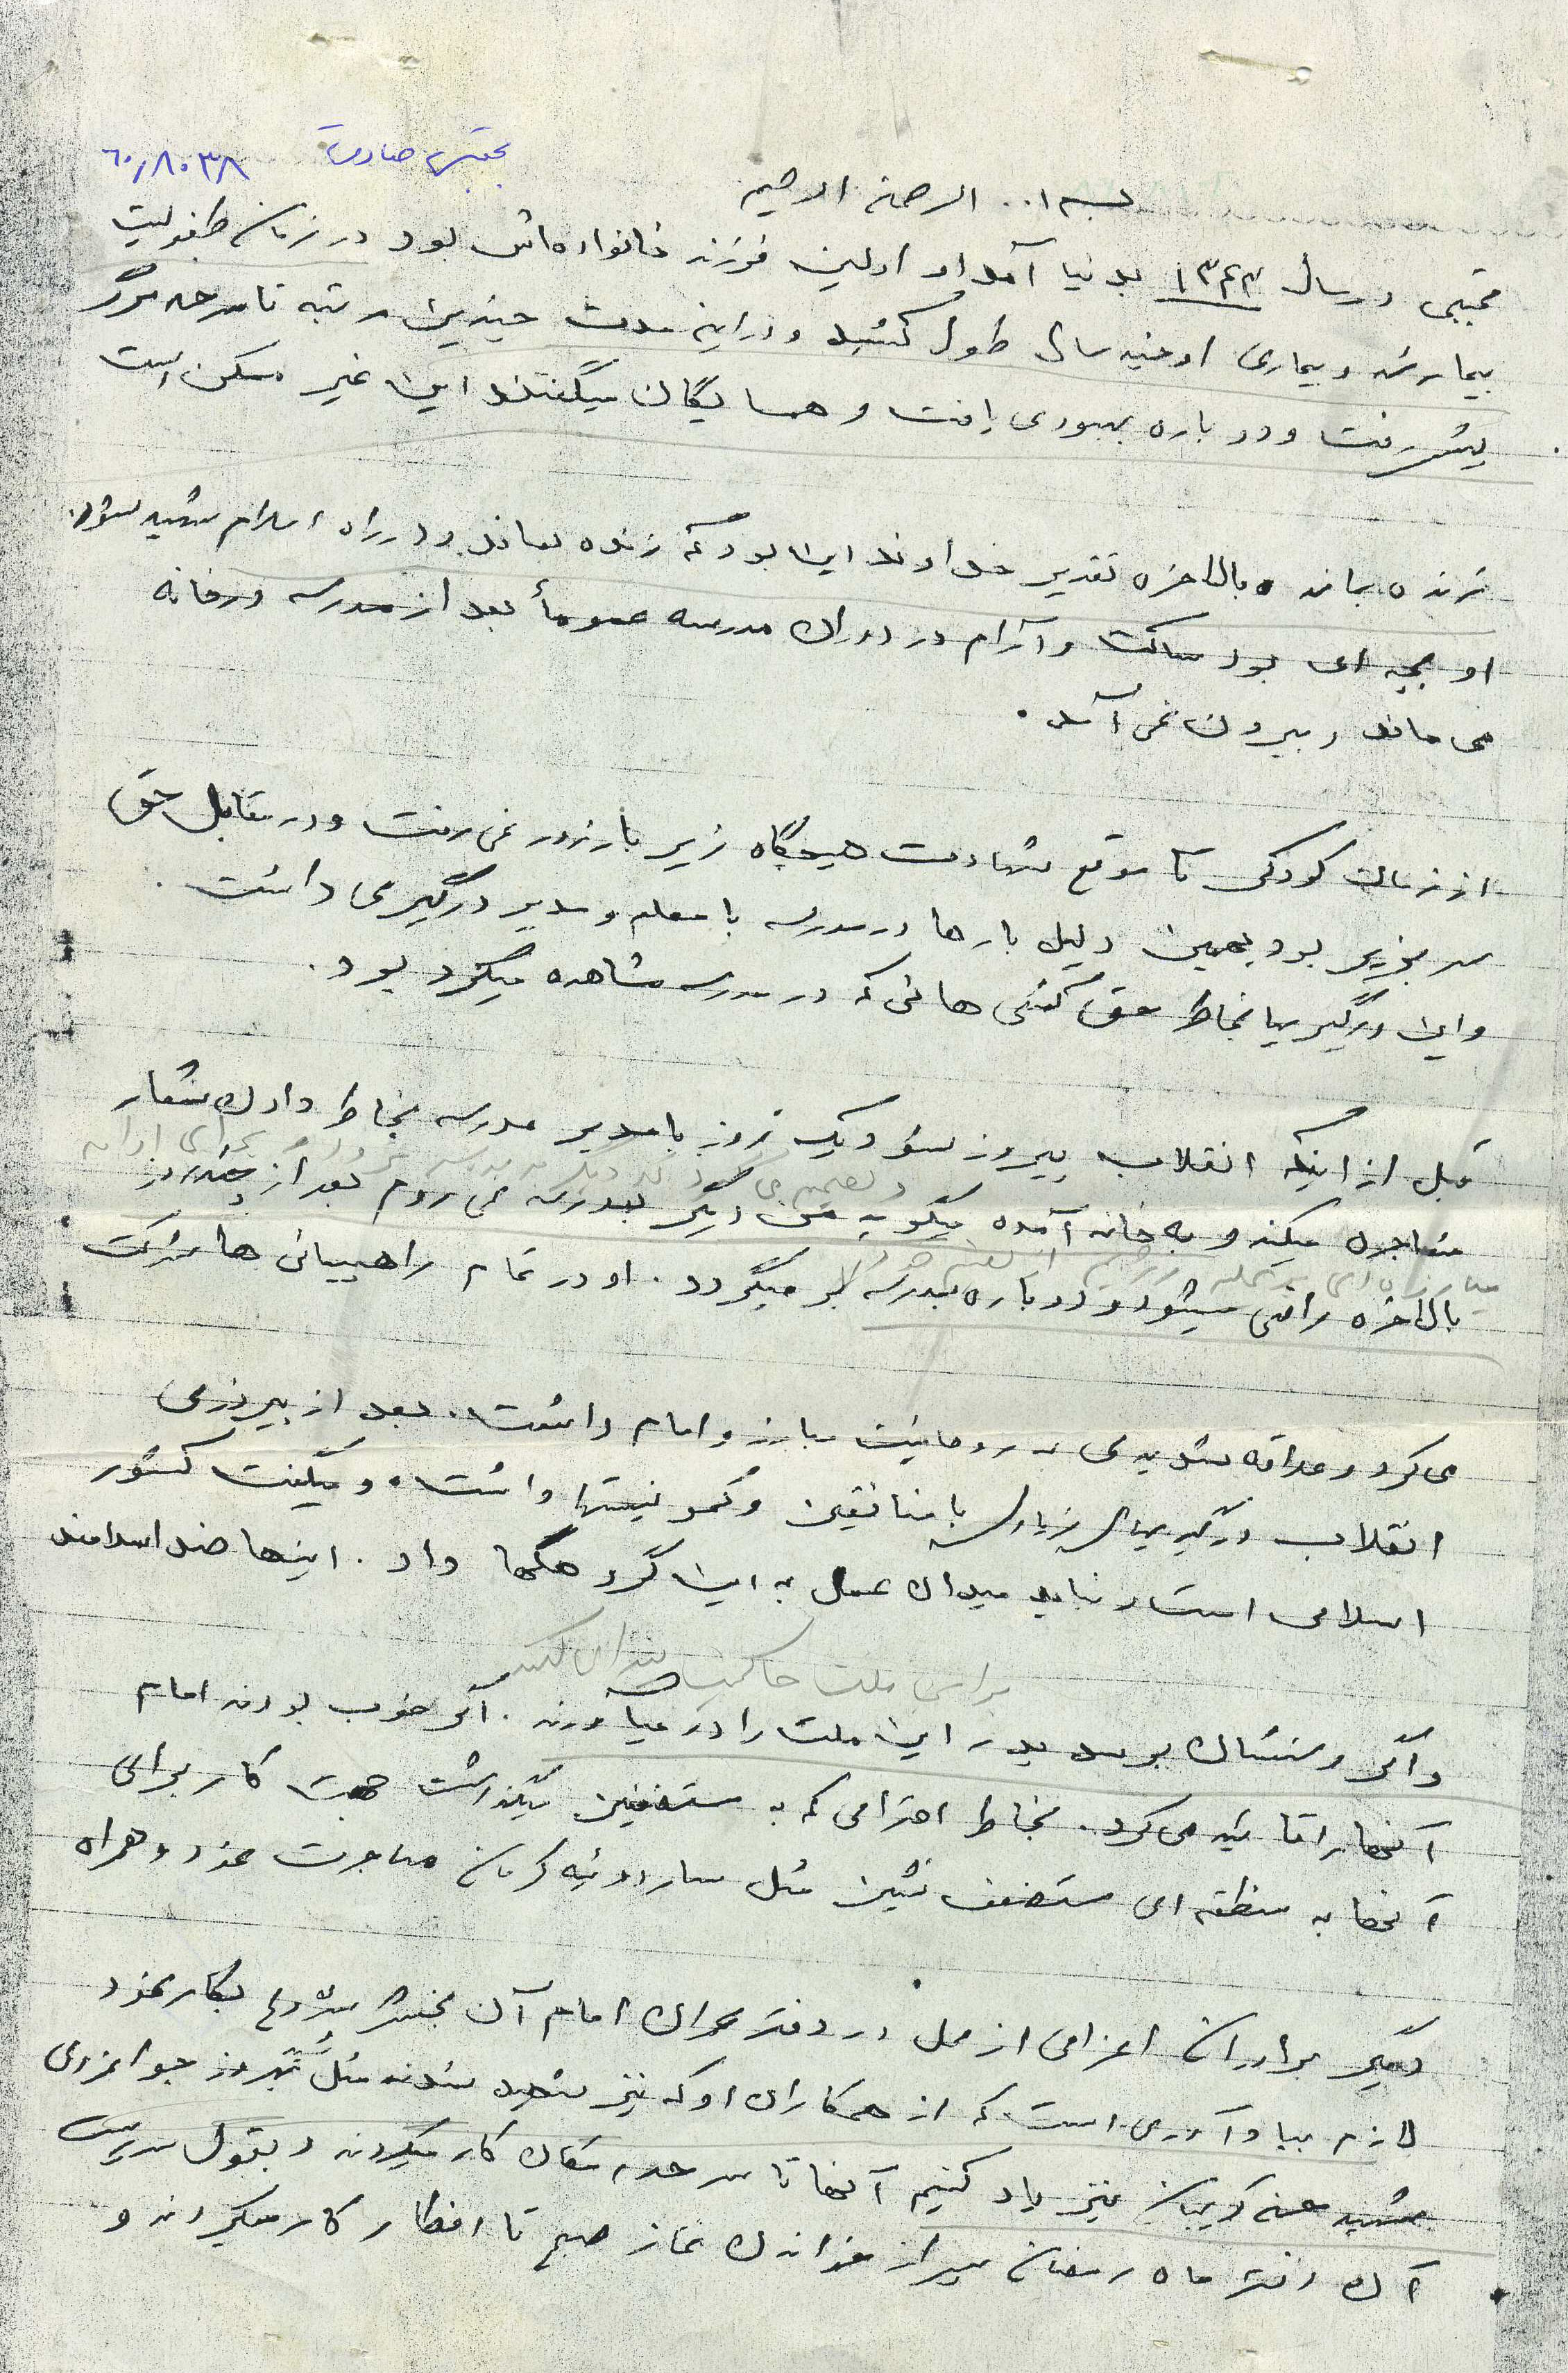 مجتبی صادقی ۶۰/۸۰۳۸
بسم ا.. الرحمن الرحیم
مجتبی در سال ۱۳۴۳ بدنیا آمد او اولین فرزند خانواده‌اش بود در زمان طفولیت
بیمار شد و بیماری او چند سال طول کشید و در این مدت چندین مرتبه تا سرحد مرگ
پیش رفت و دوباره بهبودی یافت و همسایگان میگفتند این غیر ممکن است
زنده بماند و بالاخره تقدیر خداوند این بود که زنده بماند و در راه اسلام شهید شود.
او بچه ای بود ساکت و آرام در دوران مدرسه عموماً بعد از مدرسه در خانه
می ماند و بیرون نمی آمد.
از زمان کودکی تا موقع شهادت هیچگاه زیر بار زور نمی رفت و در مقابل حق
سر بزیر بود بهمین دلیل بارها در مدرسه با معلم و مدیر درگیری داشت.
و این درگیریها بخاطر حق کشی هائی که در مدرسه مشاهده میکرد بود.
قبل از اینکه انقلاب پیروز شود یک روز با مدیر مدرسه بخاطر دادن شعار
مشاجره میکند و به خانه آمده میگوید من دیگر بمدرسه نمی روم بعد از چند روز
بالاخره راضی میشود و دوباره بمدرسه بر میگردد. او در تمام راهپیمائی ها شرکت
می کرد و علاقه شدیدی به روحانیت مبارز و امام داشت. بعد از پیروزی
انقلاب درگیریهای زیادی با منافقین و کمونیستها داشت و میگفت کشور
اسلامی است و نباید میدان عمل به این گروهکها داد. اینها ضد اسلامند
برای ملت حاکمیت پیدا می کنند
و اگر دستشان برسد پدر این ملت را در میآورند. اگر خوب بودند امام
آنها را تائید می کرد. بخاطر احترامی که به مستضعفین میگذاشت جهت کار برای
آنها به منطقه ای مستضعف نشین مثل ساردوئیه کرمان مهاجرت نمود و همراه
دیگر برادران اعزامی از محل در دفتر عمران امام آن بخش شروع بکار نمود
لازم بیادآوری است که از همکاران او که نیز شهید شدند مثل بهروز جوانمردی
شهید نیز یاد کنیم آنها تا سرحد مکان کار میکردند و بقول سرپرست
آن دفتر ماه رمضان پس از خواندن نماز صبح تا افطار کار میکردند و